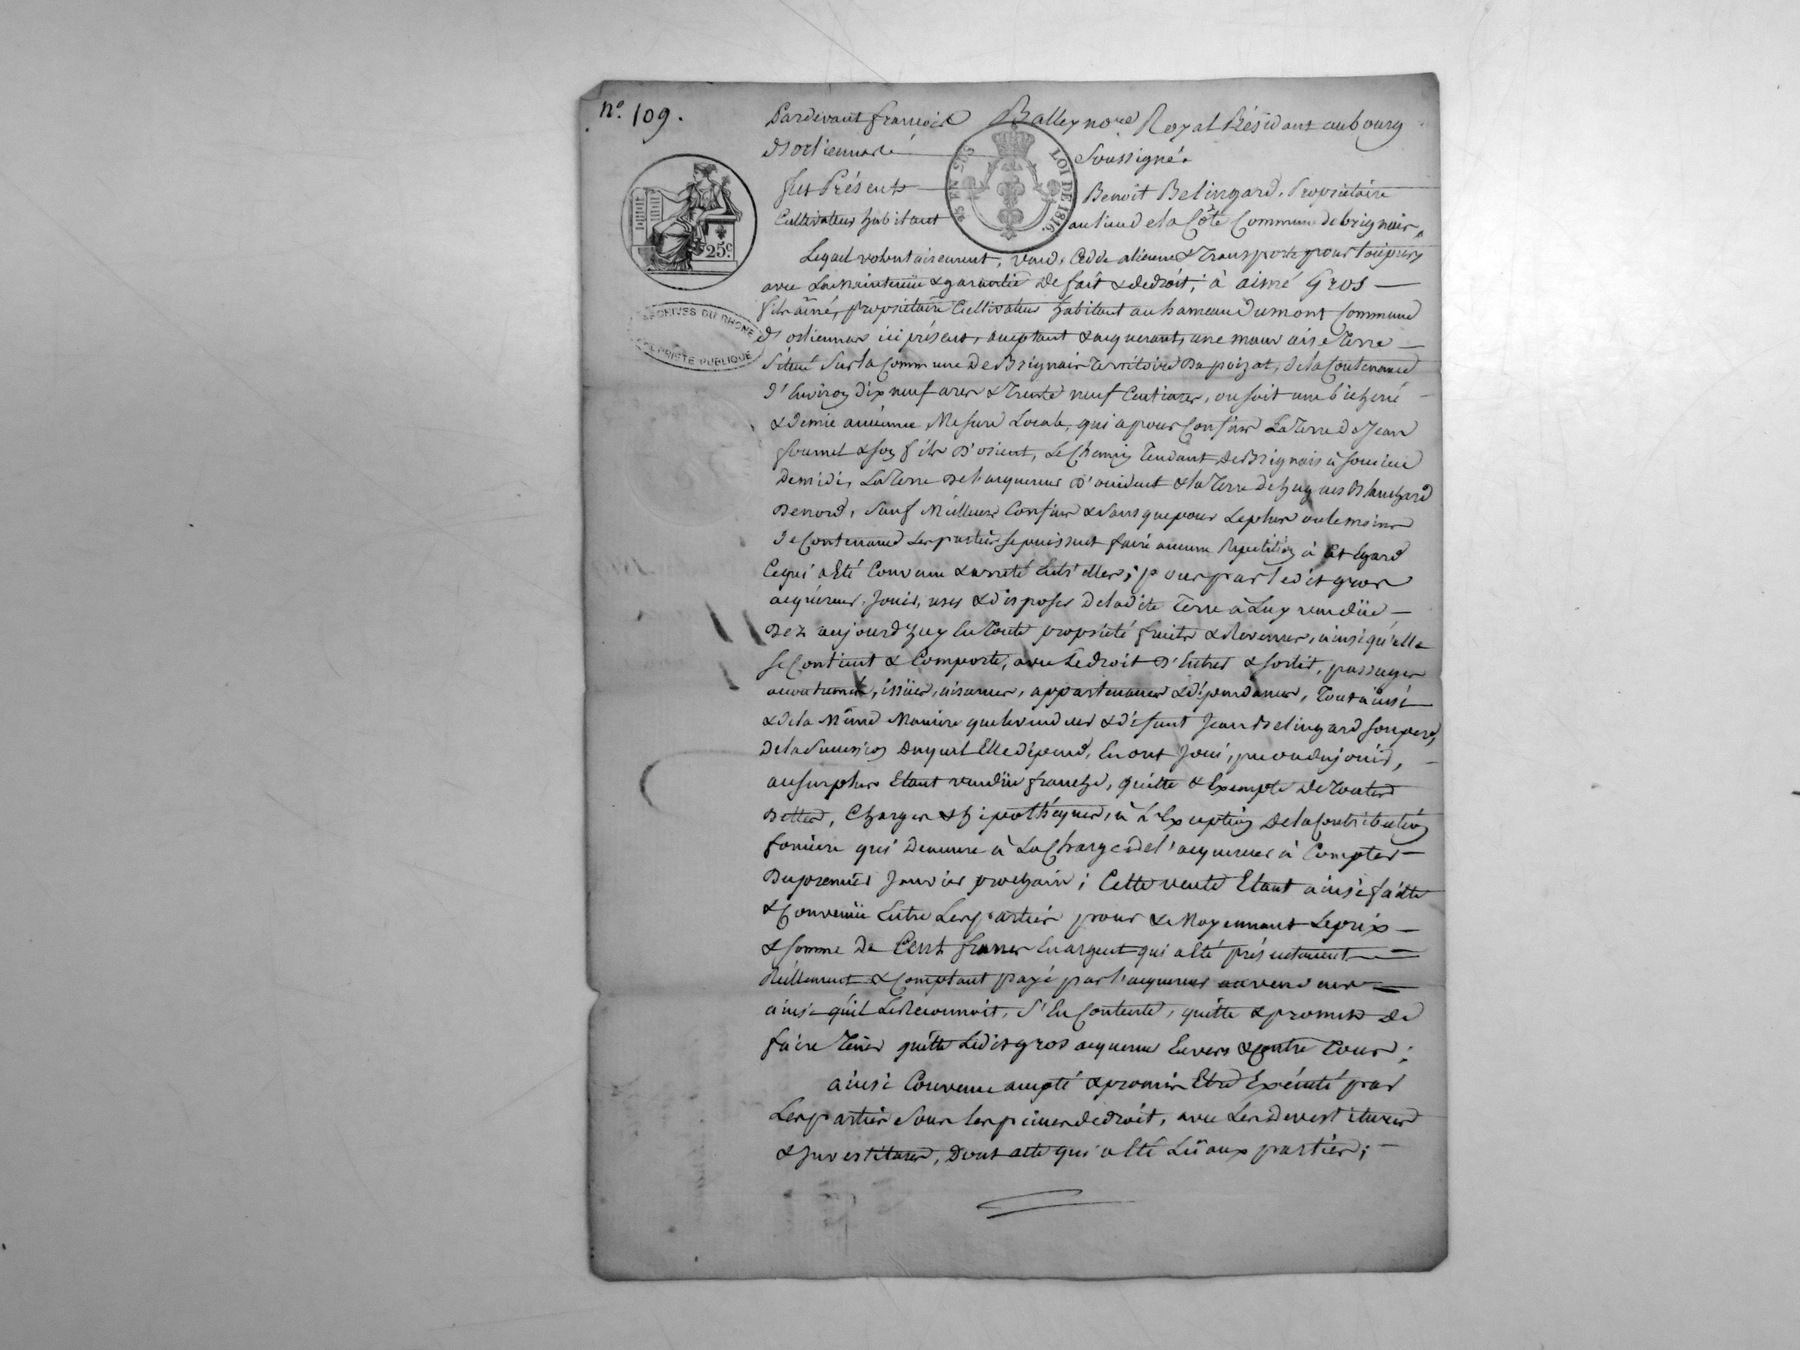 n.º 109.
Pardevant francois Balley no.re Royal Résidant au bourg
d'orliennard soussigné.
fut Présent Benoît Belingard, Propriétaire
Cultivateur habitant au lieu de la Côte Commune de brignais,
Lequel volontairement, vend, Cède aliene & Transporte pour toujours
avec La maintenüe & garantie de fait & de droit, à aimé Gros
fils ainé, propriétaire Cultivateur habitant au hameau Dumont Commune
d'orliennas ici présent, acceptant & acquerant, une mauvaise Terre
Située Sur la Commune De Brignais Territoire Du poizat, de la Contenance
d'Environ dix neuf ares & Trente neuf Centiares, ou soit une bicherée
& demie ancienne Mesure Locale, qui a pour Confins La Terre de Jean
fournel & son fils D'orient, Le Chemin Tendant de Brignais à Soucieu
de midi, La Terre De l'acquereur D'occident & la Terre de hugues Blanchard
De nord, Sauf Meilleurs Confins & sans que pour Le plus ou le moins
de Contenance Les parties se puissent faire aucune Repetition à Cet Egard
Ce qui a Eté Convenu & arreté Entr'elles; pour par le dit gros
acquéreur, Jouir, user & disposer De la dite Terre à Luy vendüe
Dez aujourdhuy En Toute propriété fruits & Revenus, ainsi qu'elle
se Contient & Comporte, avec Le droit D'Entrer & sortir, passages
accoutumés, issües, aisances, appartenances & dépendances, Tout ainsi
& de la Même Maniere que le vendeur & défunt Jean Belingard son pere,
De la Succession Duquel Elle dépend, En ont Joui, pu ou du jouir,
au surplus Etant vendüe franche, quitte & Exempte De Toutes
Dettes, Charges & hipothèques, à L'Exception De la Contribution
fonciere qui Demeure à La Charge de l'acquereur à Compter
Du premier Janvier prochain; Cette vente Etant ainsi faitte
& Convenüe Entre Les parties pour & Moyennant Le prix
& somme De Cent francs En argent qui a Eté présentement
Réellement & Comptant payé par l'acquereur au vendeur
ainsi qu'il Le Reconnoit, S'En Contente, quitte & promet De
faire Tenir quitte Ledit gros acquereur Envers & Contre Tous;
ainsi Convenu accepté & promis Etre Exécuté par
Les parties Sous Les peines de droit, avec Les Devestitures
& Investitures, Dont acte qui a Eté Lü aux parties;
25.c
25 EN SUS
LOI DE 1816.
ARCHIVES DU RHONE
PROPRIÉTÉ PUBLIQUE